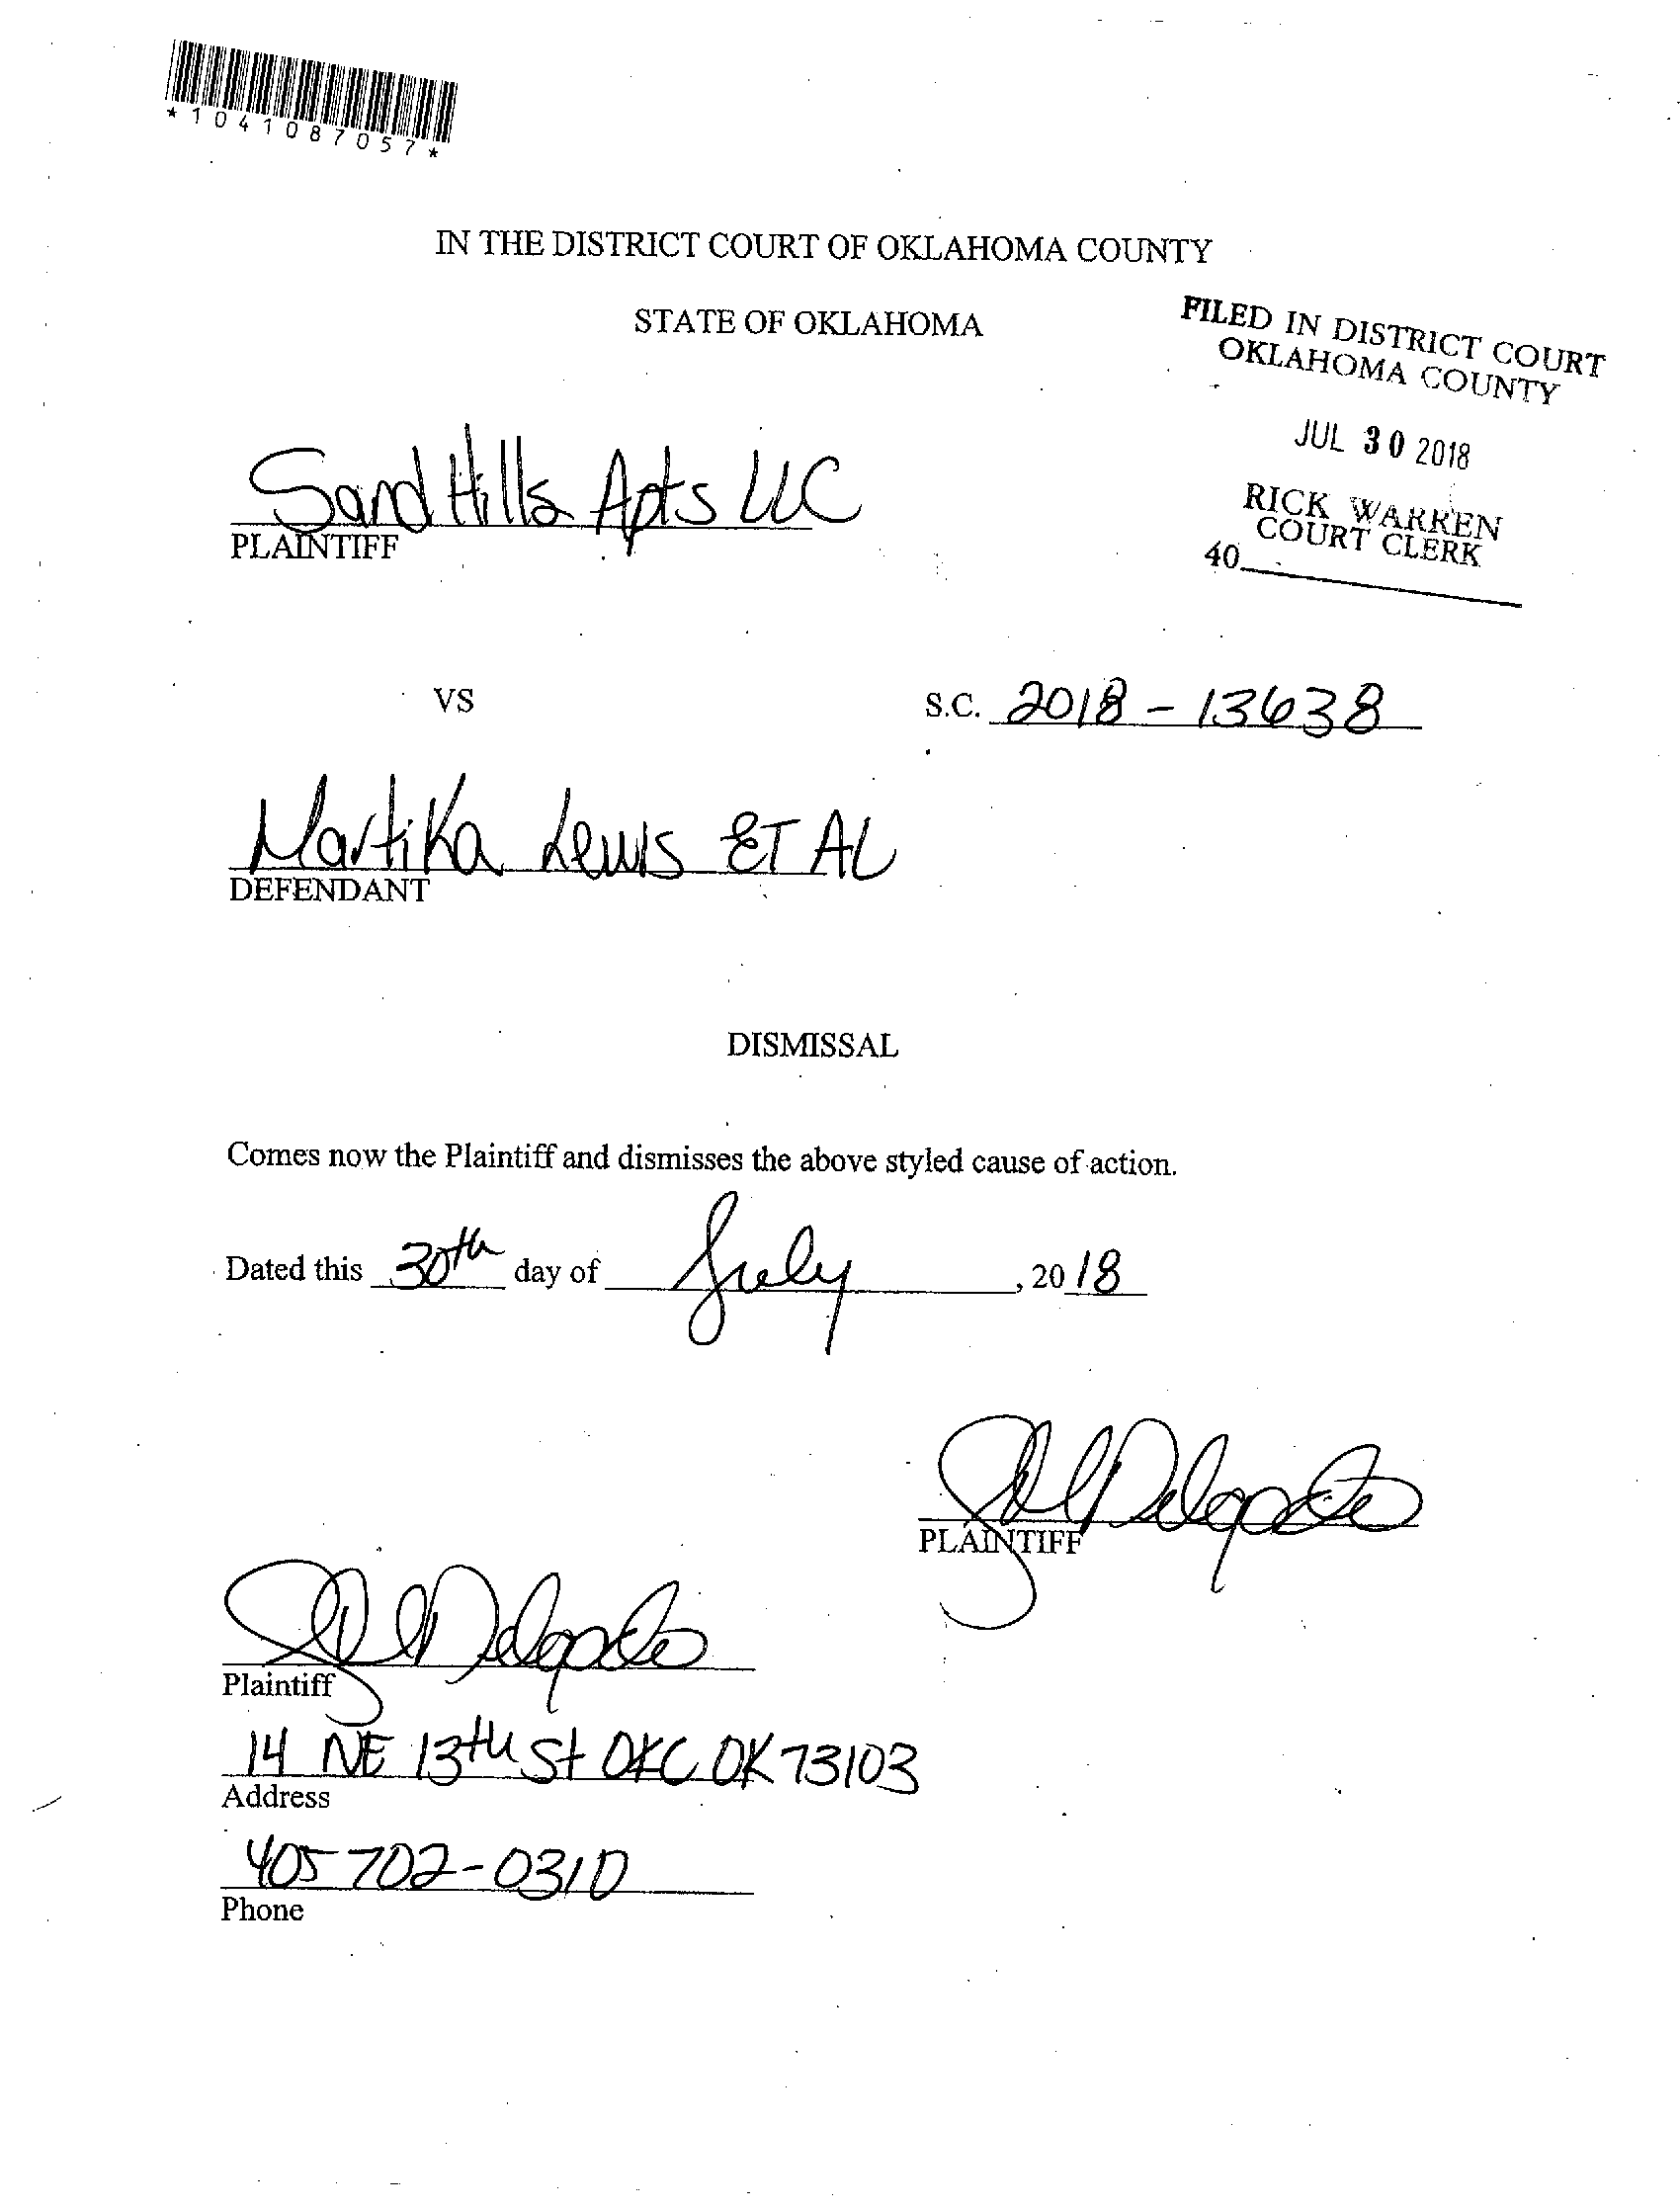 *1041087057*
IN THE DISTRICT COURT OF OKLAHOMA COUNTY
STATE OF OKLAHOMA
FILED IN DISTRICT COURT
OKLAHOMA COUNTY
JUL 30 2018
RICK WARREN
COURT CLERK
40
Sand Hills Apts LLC
PLAINTIFF
VS
S.C. 2018-13638
Martika Lewis ET AL
DEFENDANT
DISMISSAL
Comes now the Plaintiff and dismisses the above styled cause of action.
Dated this 30th day of July, 2018
Delgado
PLAINTIFF
Delgado
Plaintiff
14 NE 13th St OKC OK 73103
Address
405 702-0310
Phone